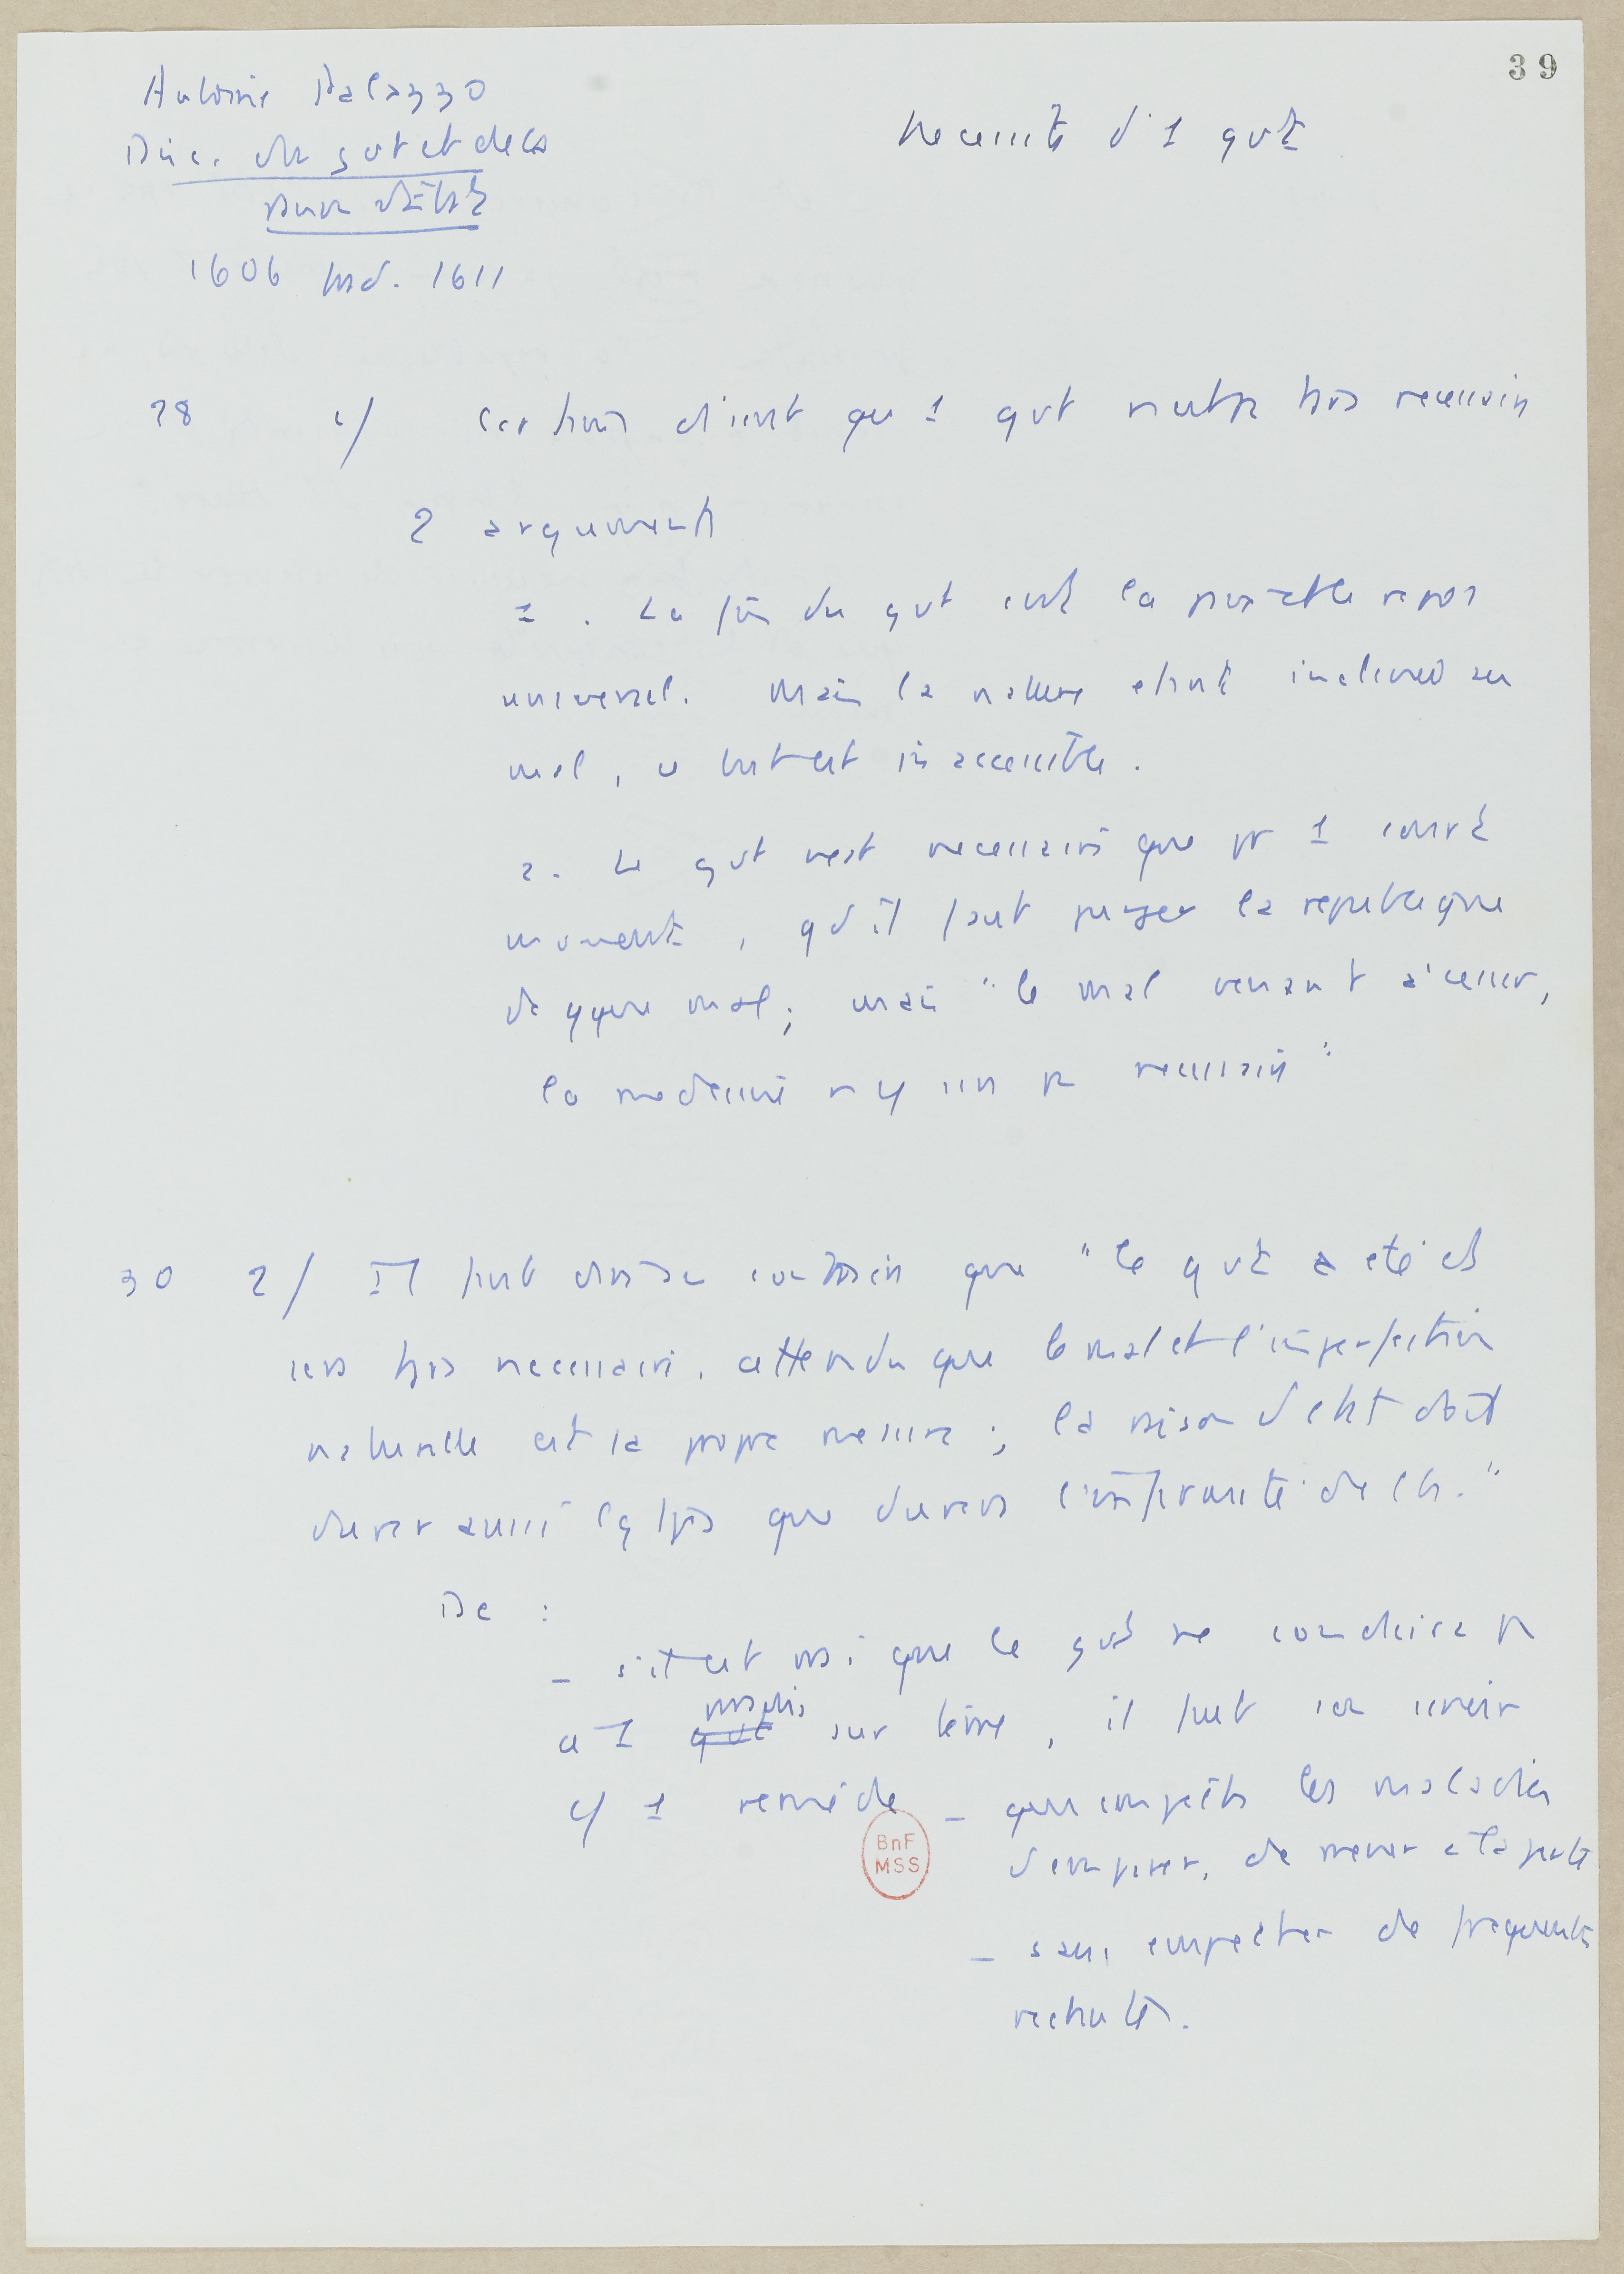 39
Antoine Palazzo
Disc. du gvt et de la
raison d'Etat
1606 trad. 1611
Necessité d' 1 gvt
28 1/ Certains disent qu 1 gvt n'est pas tjrs necessaire
2 arguments
1. La fin du gvt c'est la paix et le repos
universel. Mais la nature etant incline au
mal, ce but est inaccessible.
2. Le gvt n'est necessaire que pr 1 court
moment, qd il faut purger la republique
de qque mal; mais "le mal venant à cesser,
la medecine n'y sera pas necessaire"
30 2/ Il faut dire au contraire que "le gvt a été et
sera tjrs necessaire, attendu que le mal et l'imperfection
naturelle est sa propre mesure; la raison d'etat doit
durer aussi lgtps que durera l'infirmité de
De :
- s'il est vrai que le gvt ne conduira pas
a 1 gvt paradis sur terre, il faut
1 remède - qui empeche les maladies
d'empirer, de mener à la perte
- sans empecher de frequentes
rechutes.
BnF
MSS